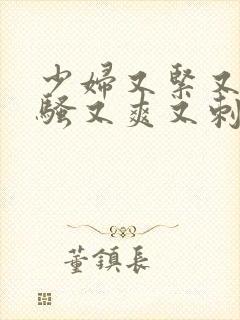 少婦又緊又
騷又爽又刺
董鎮長